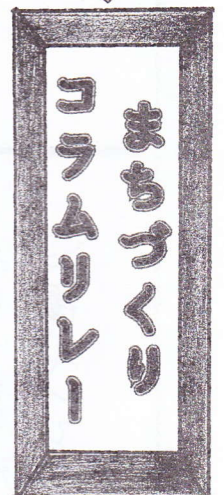 まちづくり
コラムリレー